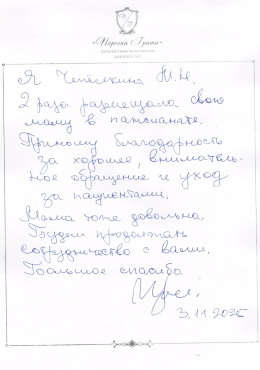 «Первая Грата»
Я Чепелкина М.Н.
2 раза размещала свою
маму в пансионате.
Приношу благодарность
за хорошее, вниматель-
ное обращение и уход
за пациентами.
Мама тоже довольна.
Будем продолжать
сотрудничество с вами.
Большое спасибо
3.11.2025